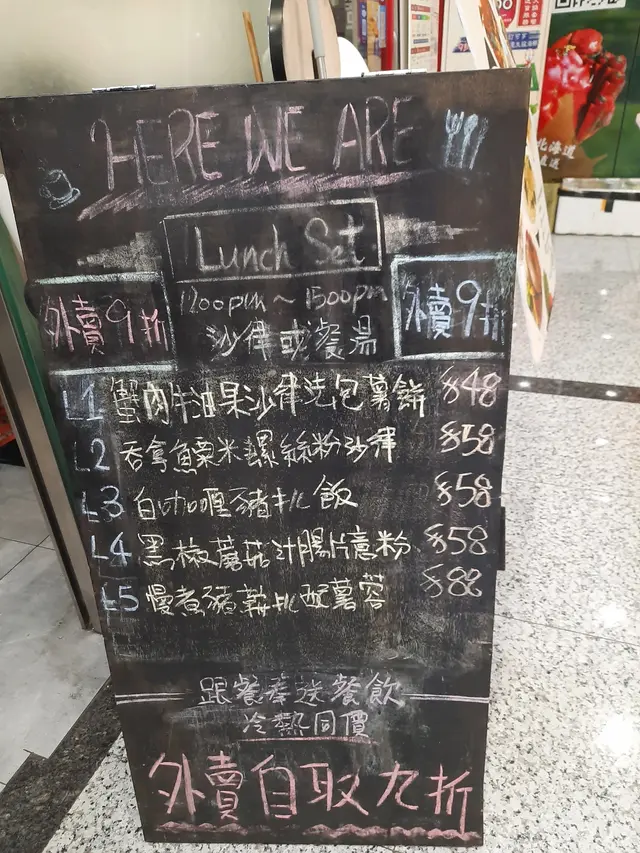 HERE WE ARE
Lunch Set
外賣9折
1200pm ~ 1500pm
外賣9折
沙律或餐湯
L1 蟹肉牛油果沙律流包薯餅 $48
L2 吞拿魚粟米螺絲粉沙律 $58
L3 白咖喱豬扒飯 $58
L4 黑椒蘑菇汁腸片意粉 $58
L5 慢煮豬鞍扒配薯蓉 $88
跟餐奉送餐飲
冷熱同價
外賣自取九折
北海道
直送